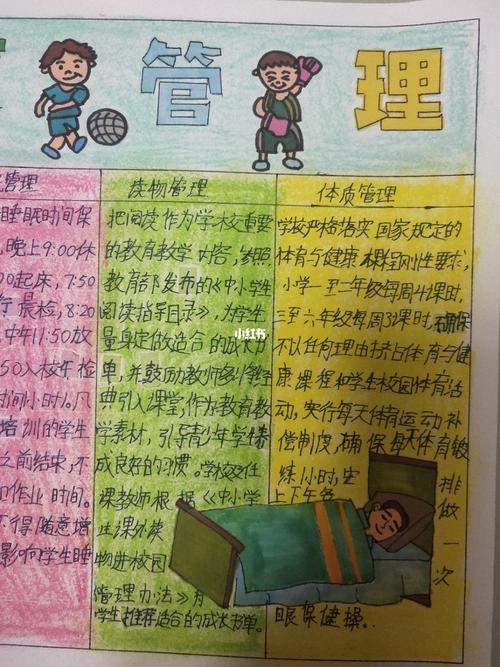 管理
管理
睡眠时间保
晚上9:00休
00起床,7:50
行晨检,8:20
中午11:50放
50入校午检
时间小时)。凡
培训的学生
之前结束,不
作业时间。
不得随意增
影响学生睡
读物管理
把阅读作为学校重要
的教育教学内容,参照
教育部发布的《中小学生
阅读指导目录》,为学生
量身定做适合的成长书
单,并鼓励教师多将经
典引入课堂,作为教育教
学素材,引导青少年学生养
成良好的习惯。学校及任
课教师根据《中小学
生课外读
物进校园
管理办法》为
学生推荐适合的成长书单。
体质管理
学校严格落实国家规定的
体育与健康课程刚性要求,
小学一至二年级每周4课时,
三至六年级每周3课时,确保
不以任何理由挤占体育与健
康课程和学生校园体育活
动,实行每天体育运动补
偿制度,确保每天体育锻
炼1小时,安排
上下午各做一次
眼保健操。
小红书